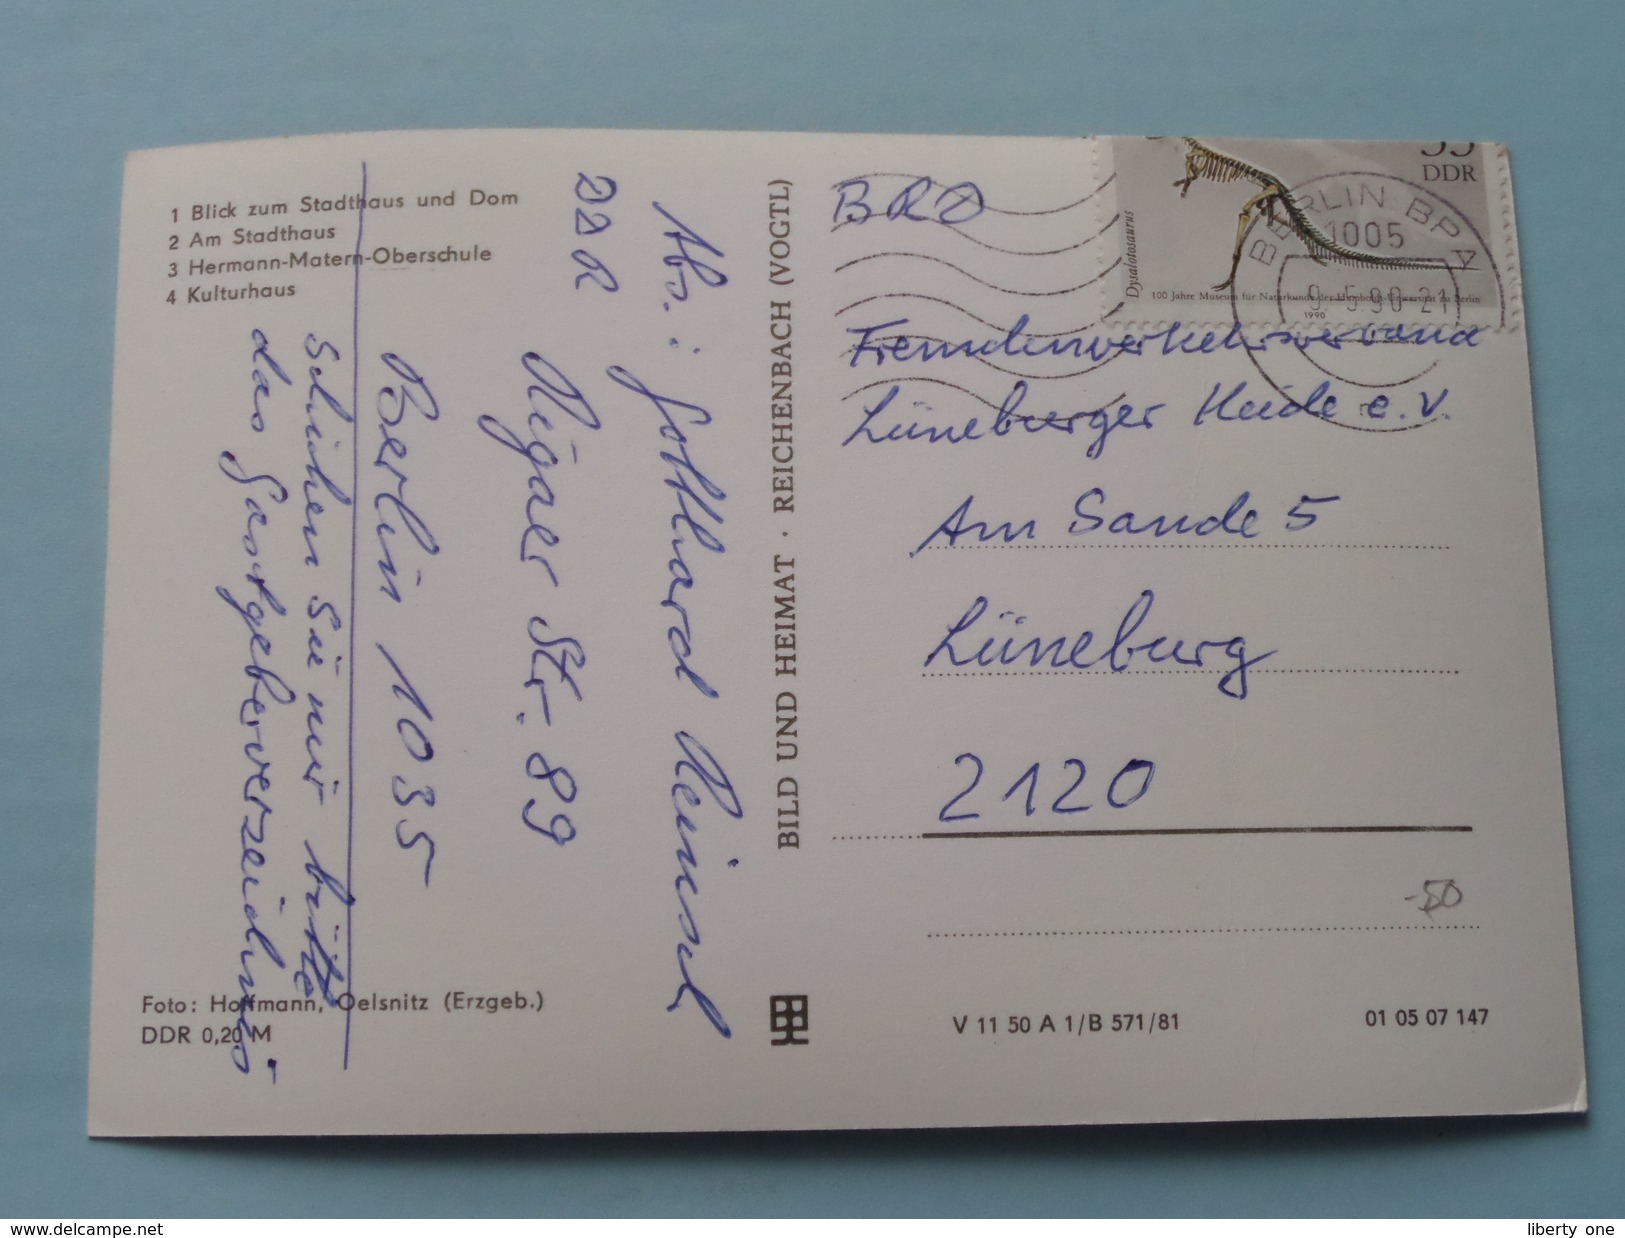 1 Blick zum Stadthaus und Dom
2 Am Stadthaus
3 Hermann-Matern-Oberschule
4 Kulturhaus
DDR
Abs.: Gotthard Reinsch
Rigaer Str. 89
Berlin 1035
Schicken Sie mir bitte
das Gastgeberverzeichnis.
Foto: Hoffmann, Oelsnitz (Erzgeb.)
DDR 0,20 M
BILD UND HEIMAT · REICHENBACH (VOGTL)
BRD
35
DDR
Dysalotosaurus
100 Jahre Museum für Naturkunde der Humboldt-Universität zu Berlin
1990
BERLIN BPA
1005
9.-5.90-21
Fremdenverkehrsverband
Lüneburger Heide e.V.
Am Sande 5
Lüneburg
2120
-50
V 11 50 A 1/B 571/81
01 05 07 147
www.delcampe.net
liberty one